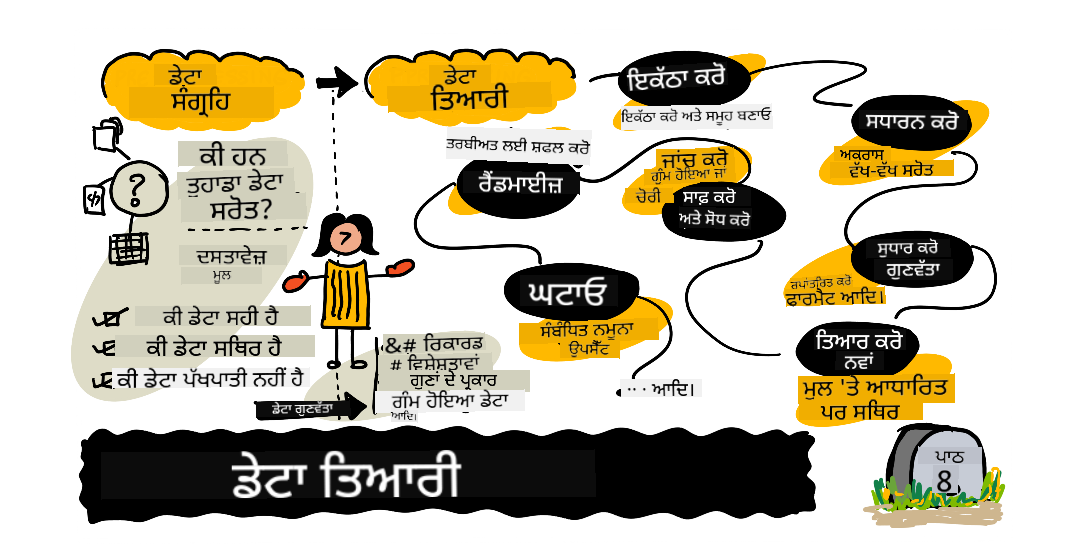 ਡੇਟਾ
ਸੰਗ੍ਰਹਿ
ਡੇਟਾ
ਤਿਆਰੀ
ਇਕੱਠਾ ਕਰੋ
ਇਕੱਠਾ ਕਰੋ ਅਤੇ ਸਮੂਹ ਬਣਾਓ
ਸਧਾਰਨ ਕਰੋ
ਅਕਰਾਸ
ਵੱਖ-ਵੱਖ ਸਰੋਤ
ਤਰਬੀਅਤ ਲਈ ਸ਼ਫਲ ਕਰੋ
ਰੈਂਡਮਾਈਜ਼
ਜਾਂਚ ਕਰੋ
ਗੁੰਮ ਹੋਇਆ ਜਾਂ
ਚੋਰੀ
ਸਾਫ਼ ਕਰੋ
ਅਤੇ ਸੋਧ ਕਰੋ
ਕੀ ਹਨ
ਤੁਹਾਡਾ ਡੇਟਾ
ਸਰੋਤ?
?
ਦਸਤਾਵੇਜ਼
ਮੂਲ
ਸੁਧਾਰ ਕਰੋ
ਗੁਣਵੱਤਾ
ਰੂਪਾਂਤਰਿਤ ਕਰੋ
ਫਾਰਮੈਟ ਆਦਿ।
ਘਟਾਓ
ਸੰਬੰਧਿਤ ਨਮੂਨਾ
ਉਪਸੈੱਟ
ਕੀ ਡੇਟਾ ਸਹੀ ਹੈ
ਕੀ ਡੇਟਾ ਸਥਿਰ ਹੈ
ਕੀ ਡੇਟਾ ਪੱਖਪਾਤੀ ਨਹੀਂ ਹੈ
&# ਰਿਕਾਰਡ
# ਵਿਸ਼ੇਸ਼ਤਾਵਾਂ
ਗੁਣਾਂ ਦੇ ਪ੍ਰਕਾਰ
ਗੁੰਮ ਹੋਇਆ ਡੇਟਾ
ਆਦਿ।
ਡੇਟਾ ਗੁਣਵੱਤਾ
... ਆਦਿ।
ਤਿਆਰ ਕਰੋ
ਨਵਾਂ
ਮੁਲ 'ਤੇ ਆਧਾਰਿਤ
ਪਰ ਸਥਿਰ
ਡੇਟਾ ਤਿਆਰੀ
ਪਾਠ
8